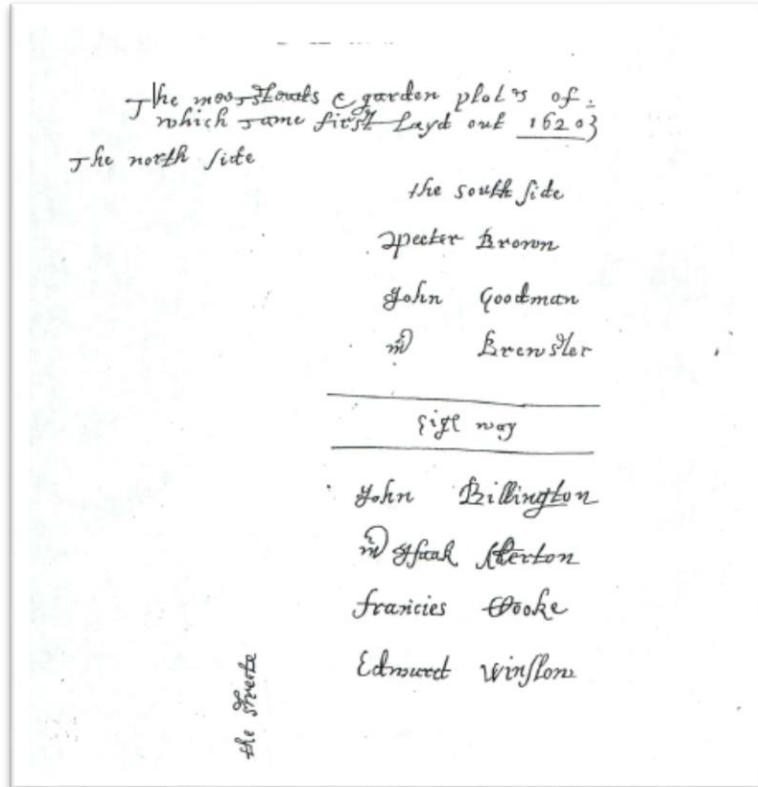 The meersteads & garden plotes of
which came first layd out 1620}
The north side
the south side
Peeter Brown
John Goodman
mr Brewster
high way
John Billington
mr Isaak Allerton
francies Cooke
Edward Winslow
the streete